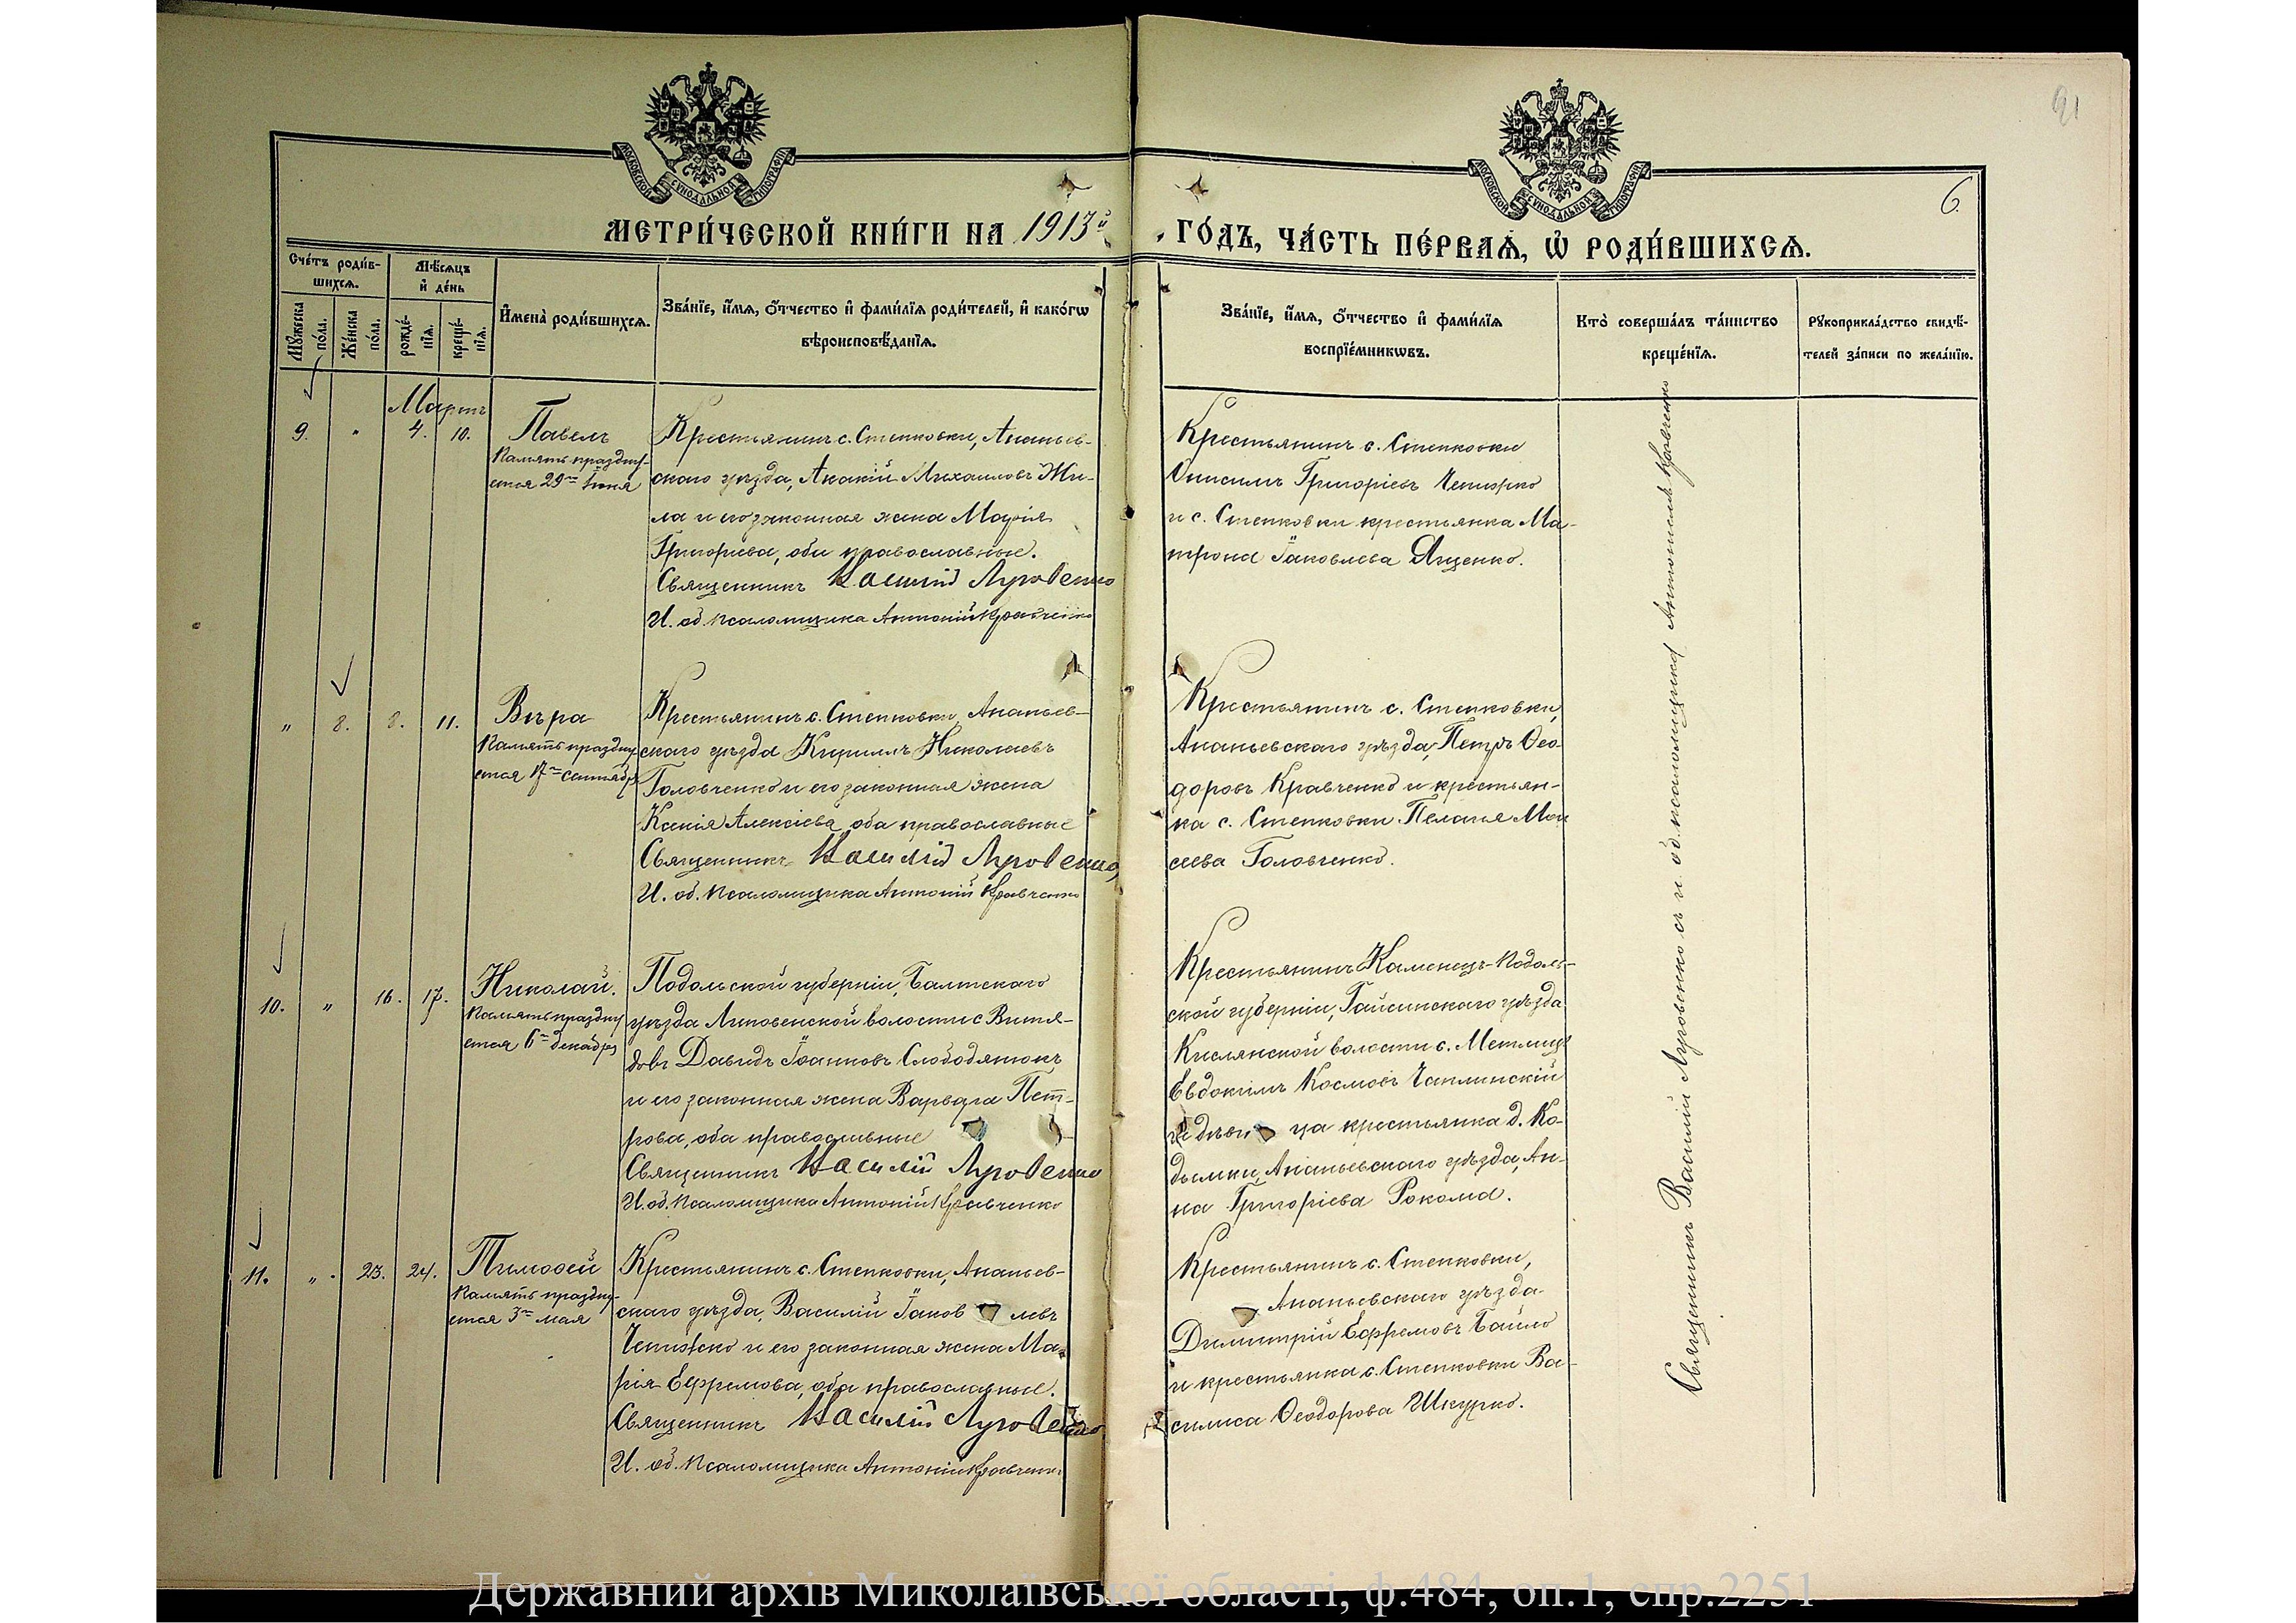 91
МОСКОВСКОЙ СѴНОДАЛЬНОЙ ТИПОГРАФІИ
МОСКОВСКОЙ СѴНОДАЛЬНОЙ ТИПОГРАФІИ
6.
МЕТРИ́ЧЕСКОЙ КНИ́ГИ НА 1913й
ГО́ДЪ, ЧА́СТЬ ПЕ́РВАѦ, Ѡ҆ РОДИ́ВШИХСѦ.
Сче́тъ роди́в-
шихсѧ.
Мꙋ́жеска
по́ла.
Же́нска
по́ла.
Мѣ́сѧцъ
и҆ де́нь
рожде́-
нїѧ.
креще́-
нїѧ.
И҆мена̀ роди́вшихсѧ.
Зва́нїе, и҆́мѧ, ѻ҆́тчество и҆ фами́лїѧ роди́телей, и҆ како́гѡ
вѣроисповѣ́данїѧ.
Зва́нїе, и҆́мѧ, ѻ҆́тчество и҆ фами́лїѧ
воспрїе́мникѡвъ.
Кто̀ соверша́лъ та́инство
креще́нїѧ.
Рꙋкоприкла́дство свидѣ́-
телей за́писи по жела́нїю.
Мартъ
9. " 4. 10.
Павелъ
Память праздну-
ется 29го Іюня
Крестьянинъ с. Степковки, Ананьев-
скаго уѣзда, Акакій Михаиловъ Жи-
ла и его законная жена Марія
Григорьева, оба православные.
Священникъ Василій Луговенко
И. об. псаломщика Антоній Кравченко
Крестьянинъ с. Степковки
Онисимъ Григоріевъ Чепурко
и с. Степковки крестьянка Ма-
трона Іаковлева Яценко.
" 8. 8. 11.
Вѣра
Память праздну-
ется 17го сентября
Крестьянинъ с. Степковки, Ананьев-
скаго уѣзда Кириллъ Николаевъ
Головченко и его законная жена
Ксенія Алексіева оба православные
Священникъ Василій Луговенко
И. об. псаломщика Антоній Кравченко
Крестьянинъ с. Степковки,
Ананьевскаго уѣзда, Петръ Ѳео-
доровъ Кравченко и крестьян-
ка с. Степковки Пелагія Мои
сеева Головченко.
10. " 16. 17.
Николай.
Память праздну
ется 6го декабря
Подольской губерніи, Балтскаго
уѣзда Липовенской волости с
Давидъ Іоанновъ Слободянюкъ
и его законная жена Варвара Пет-
рова, оба православные
Священникъ Василій Луговенко
И. об. псаломщика Антоній Кравченко
Крестьянинъ Каменецъ-Подоль-
ской губерніи, Гайсинскаго уѣзда
Кислянской волости с.
Евдокимъ Космовъ Чаплинскій
и дѣви ца крестьянка д. Ко-
дымки, Ананьевскаго уѣзда, Ан-
на Григоріева Рокома.
11. " 23. 24.
Тимоѳей
Память праздну-
ется 3го мая
Крестьянинъ с. Степковки, Ананьев-
скаго уѣзда, Василій Іаков левъ
Чепурко и его законная жена Ма-
рія Ефремова, оба православные.
Священникъ Василій Луговенко
И. об. псаломщика Антоній Кравченко
Крестьянинъ с. Степковки,
Ананьевскаго уѣзда
Димитрій Ефремовъ Байло
и крестьянка с. Степковки Ва-
силиса Ѳеодорова Шкурко.
Священникъ Василій Луговенко съ и. об. псаломщика Антоніемъ Кравченко
Державний архів Миколаївської області, ф.484, оп.1, спр.2251